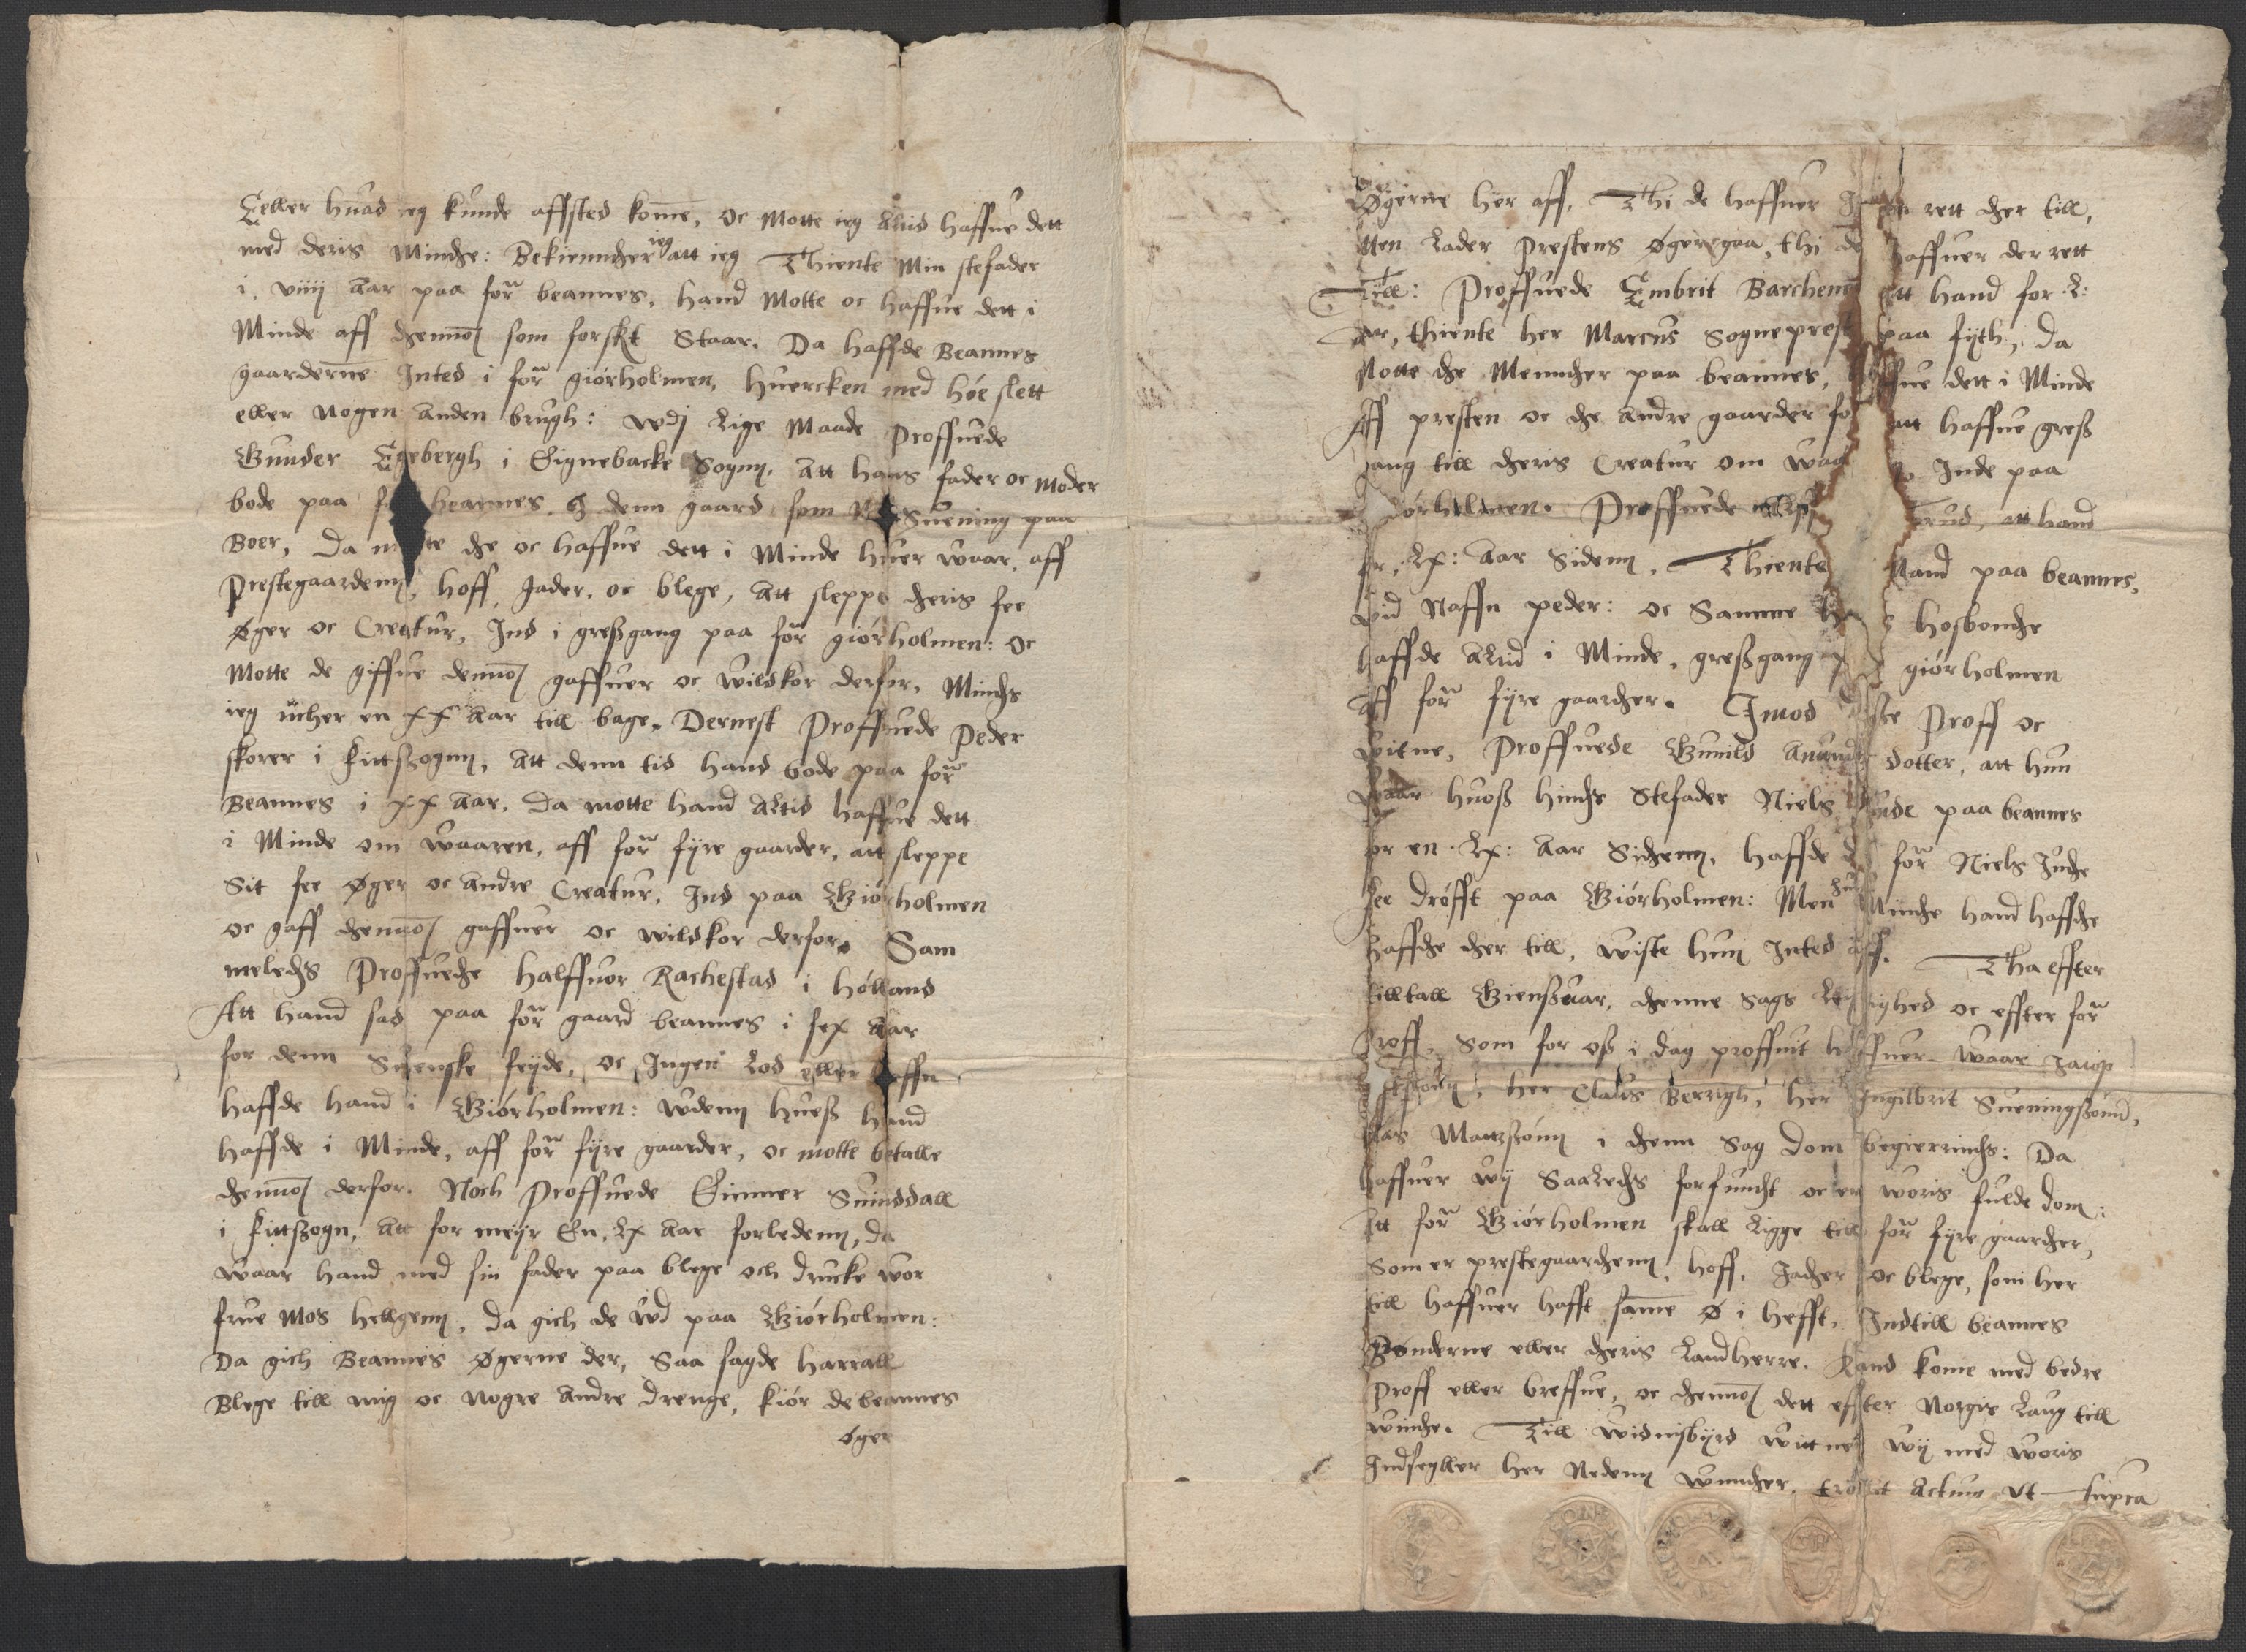 Eller huad ieg kunde affsted kome, oc Motte ieg altid haffue dett
med deris Mindhe: Bekienndher ieg att ieg Thiente Min stefader
i. viij aar paa for beannes, hand Motte oc haffue dett i
Minde aff dhennom som forskt Staar. Da haffde Beannes
gaarderne Inted i for giörholmen, huercken med höe slett
eller nogen anden brugh: wdj Lige Maade Proffuede
Gunder Egebergh i Eignebacke Sognn, att hans fader oc Moder
bode paa beannes, denn gaard som Suening paa
Boer, Da dhe oc haffue dett i Minde huer waar, aff
Prestegaardenn, hoff, Jader, oc blege, att sleppe dheris fee
Øger oc Creatur, Ind i greßgang paa for giörholmen: oc
Motte de giffue dennom gaffuer oc wildkor derfor, Mindhs
ieg ücher en xx aar till bage. Dernest Proffuede Peder
skorer i fittßognn, att denn tid hand bode paa for
Beannes i xx aar, da motte hand altid haffue dett
i Minde om waaren, aff for fyre gaarder, att sleppe
Sit fee øger oc andre Creatur, Ind paa Giörholmen
oc gaff dhennom gaffuer oc wildkor derfor. Sam
meledhs Proffuedhe halffuor Rachestad i hölland
Att hand sad paa for gaard beannes i sex aar
for denn Suenske feyde, oc Ingen Lod eller
haffde hand i Giörholmen: wdenn hueß hand
haffde i Minde, aff for fyre gaarder, oc motte betalle
dhennom derfor. Noch Proffuede Einner Suinddall
i fittßogn, att for meyr En, Lx aar forledenn, da
waar hand med sin fader paa blege och drucke wor
frue Mos hellgenn, da gich de wd paa Giörholmen:
Da gich Beannes øgerne der, Saa sagde harrall
Blege till mig oc nogre andre drenge, kiör de beannes
øger
Øgerne her aff, Thi de haffuer rett dher till,
Men Lader Prestens øgere gaa, thi de haffuer der rett
Till: Proffuede Embrit Barchenn att hand for L:
aar, thiente her Marcus Sogneprest paa fyth, da
Motte dhe Menndher paa beannes, haffue dett i Minde
Aff presten oc dhe andre gaarder for att haffue greß
gang till dheris Creatur om Inde paa
giörholmen. Proffuede att hand
for, Lx: aar Sidenn, Thiente Mand paa beannes,
wid Naffn peder: oc Samme hosbondhe
haffde altid i Minde, greßgang giörholmen
aff for fyre gaardher. Imod Proff oc
witne, Proffuede Gunild dotter, att hun
waar huoß hindhs Stefader Niels paa beannes
for en Lx: aar Sidhenn, haffde for Niels Indhe
fee dröfft paa Giörholmen: Men Mindhe hand haffdhe
haffdhe dher till, wiste hun Inted aff. Tha effter
tilltall Giensuar, dhenne Sags Leylighed oc effter for
Proff, Som for oß i dag proffuit haffuer waar Jacop
her Claus Berrigh, her Ingilbrit Sueningßönn,
Matzßönn i dhenn Sag dom begierrindhs: Da
haffuer wij Saaledhs forfundit oc er woris fulde dom:
Att for Giörholmen skall Ligge till for fyre gaardher,
Som er prestegaardhenn, hoff, Jadher oc blege, som her
till haffuer hafft same Ø i hefft, Indtill beannes
Bønderne eller dheris Landherre, Kand kome med bedre
Proff eller breffue, oc dhennom dett effter Norgis Laug till
windhe. Till widnisbyrd wittner wij med woris
Indsegller her Nedenn wnndher, tröckt Actum Vt supra